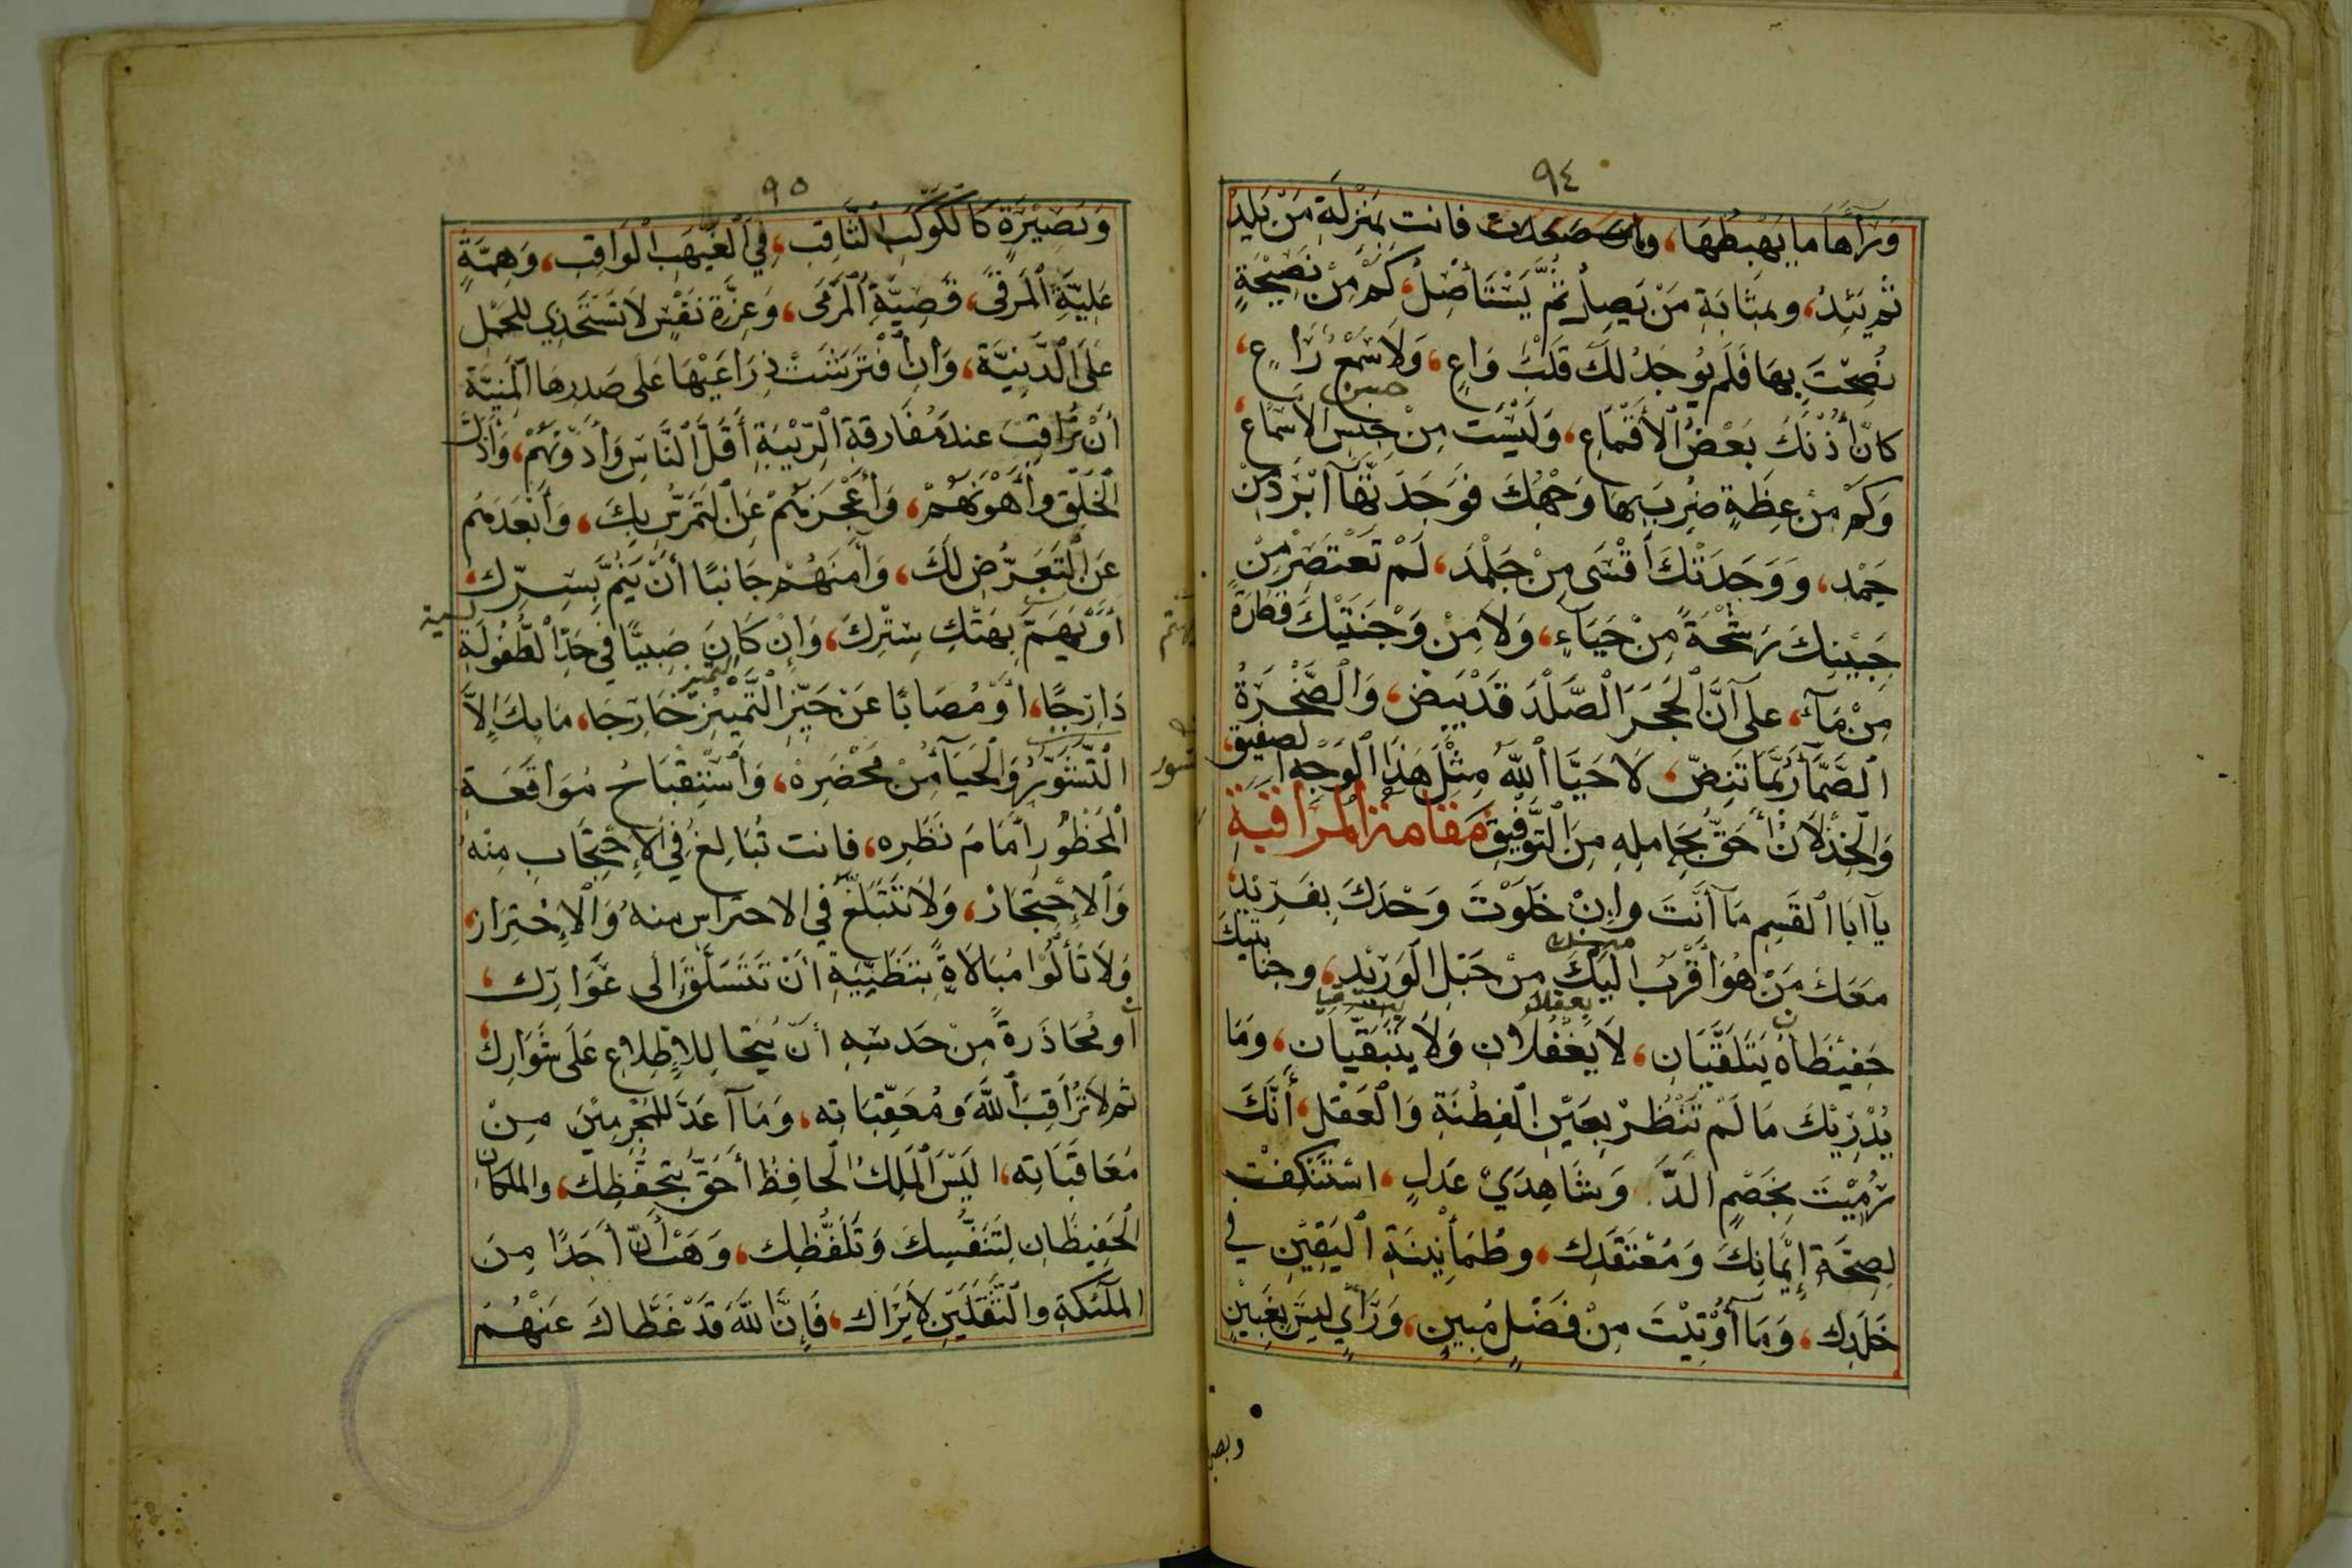 ٩٤
وَرَآءَهَا مَا يَهْبِطُهَا، فانت بمَنْزِلَةِ مَنْ يَلِدُ
ثم يَئِدُ، وبمَثَابَةِ مَنْ يَصِلُ ثُمَّ يَسْتَأصِلُ، كَمْ مِنْ نَصِيْحَةٍ
نُصِحْتَ بِهَا فَلَم يُوجَدْ لَكَ قَلْبٌ وَاعٍ، وَلَا سَمْعٌ رَاعٍ،
كانّ أُذُنَكَ بَعْضُ الْأَقْمَاعِ، وَلَيْسَت مِنْ جِنْسِ الْاَسْمَاعِ،
وَكَمْ مِنْ عِظَةٍ ضُرِبَ بِهَا وَجْهُكَ فَوَجَدْتَهَآ اَبْرَدَ مِنْ
جَمْدٍ، وَوَجَدَتْكَ اَقْسَى مِنْ جَلْمَد، لَمْ تَعْتَصِرْ مِنْ
جَبِيْنِكَ رَشْحَةً مِنْ حَيَاءٍ، وَلَا مِنْ وَجْنَتَيْكَ قَطْرَةً
مِنْ مَآءٍ، عَلى اَنَّ الْحَجَرَ الْصَّلْدَ قَدْ يَبِضُّ، وَالْصَّخْرَةُ
الصَّمَّآءُ رُبَّمَا تَنِضُّ، لَا حَيَّا اللهُ مِثْلَ هَذَا الْوَجْهِ الصفيق،
وَالْخِذْلَانُ أَحَقُّ بِحَامِلِهِ مِنَ الْتَّوْفِيْقِ مَقَامَةُ الْمُرَاقَبَةِ
يَآ اَبَا الْقَسِمِ مَآ أَنْتَ وَاِنْ خَلَوْتَ وَحْدَكَ بِفَرِيْدٍ،
مَعَكَ مَنْ هُوَ اَقْرَبُ اِلَيْكَ مِنْ حَبْلِ الْوَرِيْدِ، وجنابتيك
حَفِيْظَانِ يَتَلَقَّيَانِ، لَا يَغْفُلَانِ وَلَا يَتَبَقَّيَانِ، وَمَا
يُدْرِيْكَ مَا لَمْ تَنْظُرْ بِعَيْنِ الْفِطْنَةِ وَالْعَقْلِ، أَنَّكَ
رُمِيْتَ بِخَصْمٍ اَلَدَّ. وَشَاهِدَيْ عَدْلٍ، استَنْكَفْتَ
لِصِحَّةِ إِيْمَانِكَ وَمُعْتَقَدِكَ، وطُمَأْنِيْنَةِ الْيَقِيْنِ في
خَلَدِكَ، وَمَآ أُوْتِيْتَ مِنْ فَضْلٍ مُبِيْنٍ، وَرَأْيٍ لَيْسَ بِغَبِيْنٍ
٩٥
وَبَصِيْرَةٍ كَالْكَوْكَبِ الْثَّاقِبِ، فِي الْغَيْهَبِ الْوَاقِبِ، وَهِمَّةٍ
عَلِيَّةِ الْمَرْقَى، قَصِيَّةِ الْمَرْمَى، وَعِزَّةِ نَفْسٍ لَا تَسْتَخْذِي للحَمْلِ
عَلَى الْدَّنِيَّةِ، وَاِنِ افْتَرَشَتْ ذِرَاعَيْهَا عَلَى صَدْرِهَا الْمَنِيَّة
أَنْ تُرَاقِبَ عند مُفَارقةِ الرِّيْبَةِ أَقَلَّ الْنَّاسِ وَأَدْوَنَهُمْ، وَأَذَلَّ
الْخَلْقِ وَأَهْوَنَهُمْ، وَأَعْجَزَهُمْ عَنِ الْتَّمَرُّسِ بِكَ، وَأَبْعَدَهُم
عَنِ الْتَعَرُّضِ لَكَ، وَآمَنَهُمْ جَانِبًا أَنْ يَنُمَّ بِسِرِّكَ،
أَوْ يَهِمَّ بِهَتْكِ سِتْرِكَ، وَاِنْ كَانَ صَبِيًّا في حَدِّ الْطُّفُولَةِ
دَارِجًا، اَوْ مُصَابًا عَنْ حَيِّزِ الْتَّمْيِيْزِ خَارِجَا، مَا بِكَ اِلَّا
الْتَّشَوُّرُ وَالْحَيَآءُ مِنْ مَحْضَرِهْ، وَاسْتِقْبَاحُ مُوَاقَعَةِ
الْمَحْظُورِ اَمَامَ نَظَرِه، فانت تُبَالِغُ فِي الْاِحْتِجَابِ مِنْهُ
وَالْاِحْتِجَازْ، وَلَا تَتَبَلَّغُ في الاحتراسِ منهُ وَالْاِحْتِرَاز،
وَلَا تَأْلُوا مُبَالَاةً بِتَظَنِّيَةِ أَنْ تَتَسَلَّقَ الى عَوَارِكَ،
أو مُحَاذَرةً مِنْ حَدْسِهِ أنْ يُنْحَا لِلاِطِلاعِ عَلَى شَوَارِكَ،
ثم لَا تُرَاقِبَ اللهَ وَمُعَقِّبَاتِه، وَمَآ اَعَدَّ للمُجْرِمِيْنَ مِنْ
مُعَاقَبَاتِه، اَلَيْسَ الْمَلِكُ الْحَافِظُ أَحَقَّ بِتَحَفُّظِكَ، والملكان
الْحَفِيْظَانِ لِتَنَفُّسِكَ وَتَلَفُّظِكَ، وَهَبْ أَنَّ أحَدًا مِنَ
المَلَئِكَةِ والْثَّقَلَيْنِ لَا يَرَاكَ، فَاِنَّ اللهَ قَدْ غَطَّاكَ عَنْهُمْ